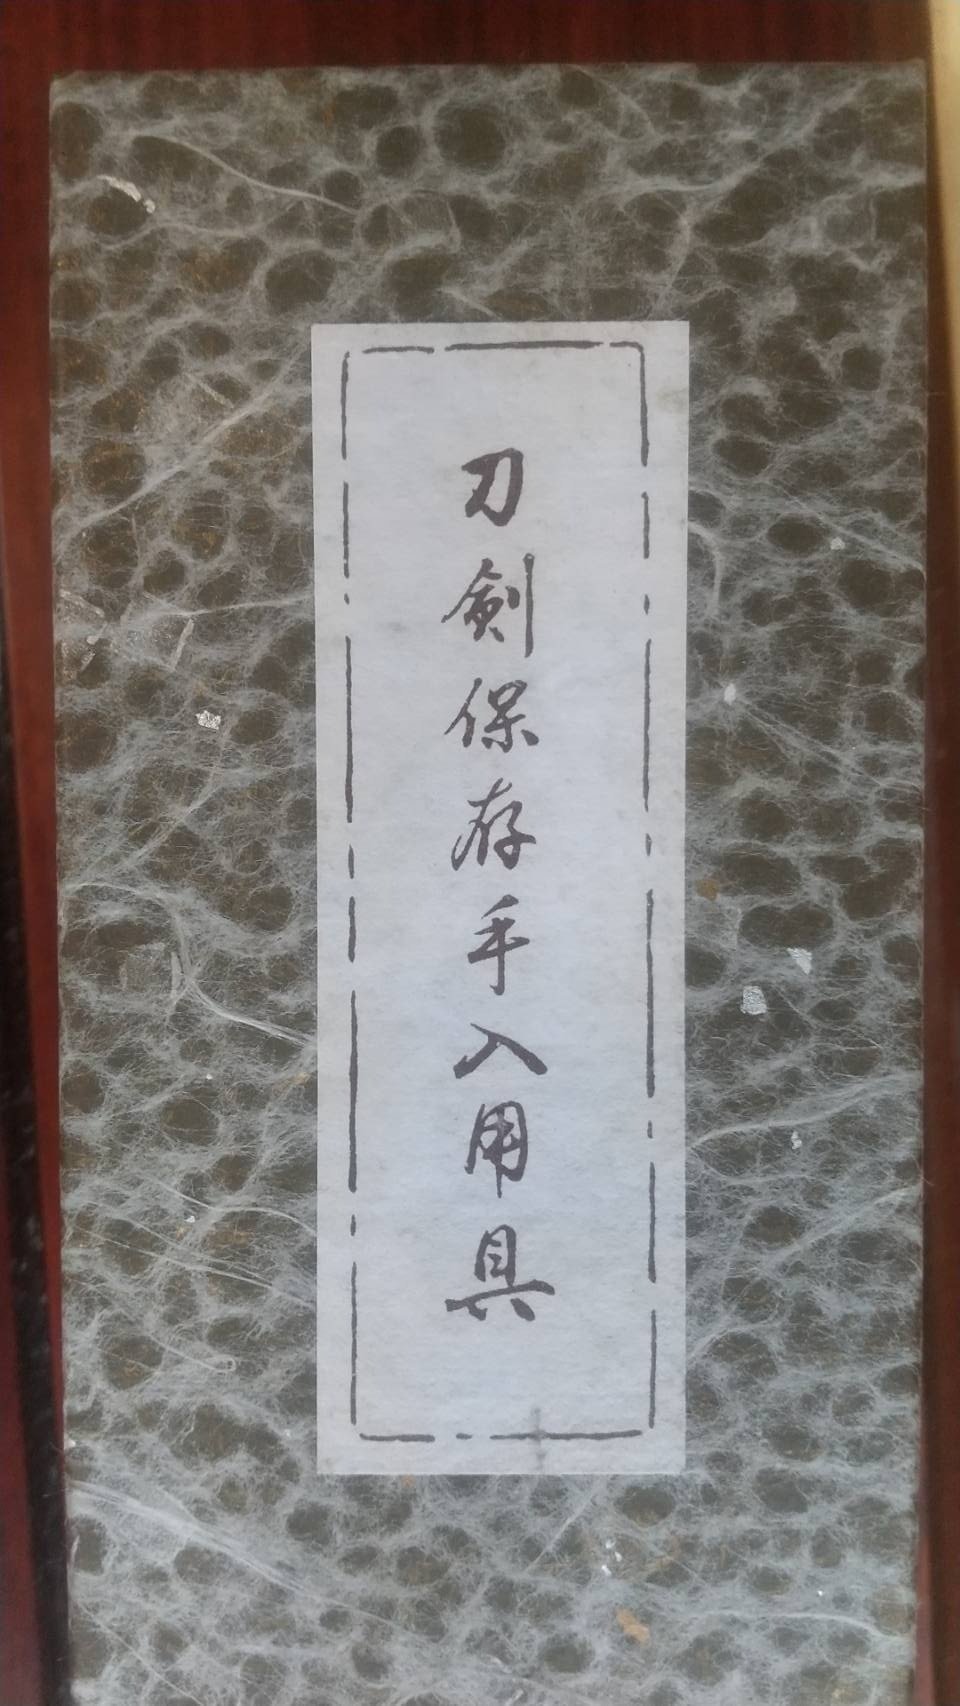 刀剣保存手入用具